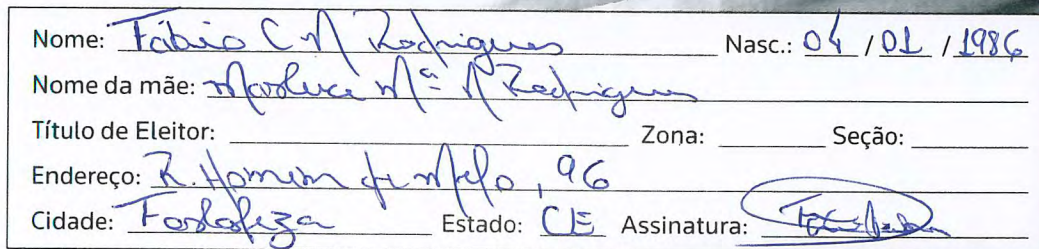 Nome: Fábio C N Rodrigues Nasc.: 04 / 01 / 1986
Nome da mãe: Marluce Mª N Rodrigues
Título de Eleitor: Zona: Seção:
Endereço: R. Homem de Melo, 96
Cidade: Fortaleza Estado: CE Assinatura: